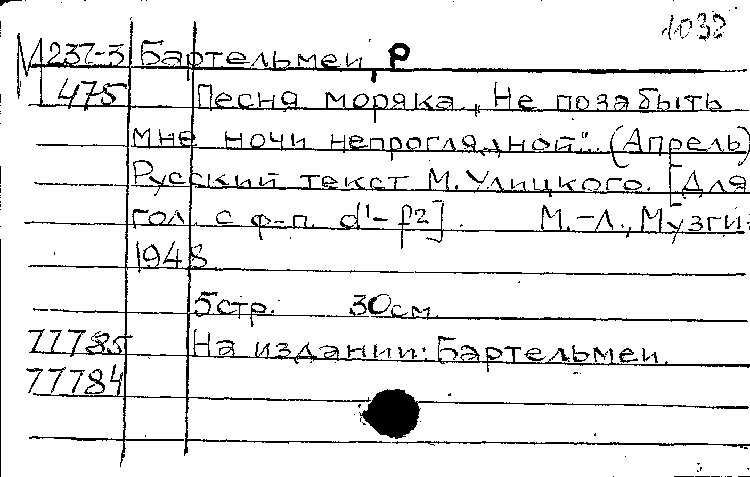 1038
М 237-3 Бартельмеи, Р
475 Песня моряка „Не позабыть
мне ночи непроглядной". (Апрель)
Русский текст М. Улицкого. [Для
гол. с ф-п. d¹-f²]. М.-Л., Музгиз
1948
5 стр. 30 см.
77785 На издании: Бартельмеи.
77784